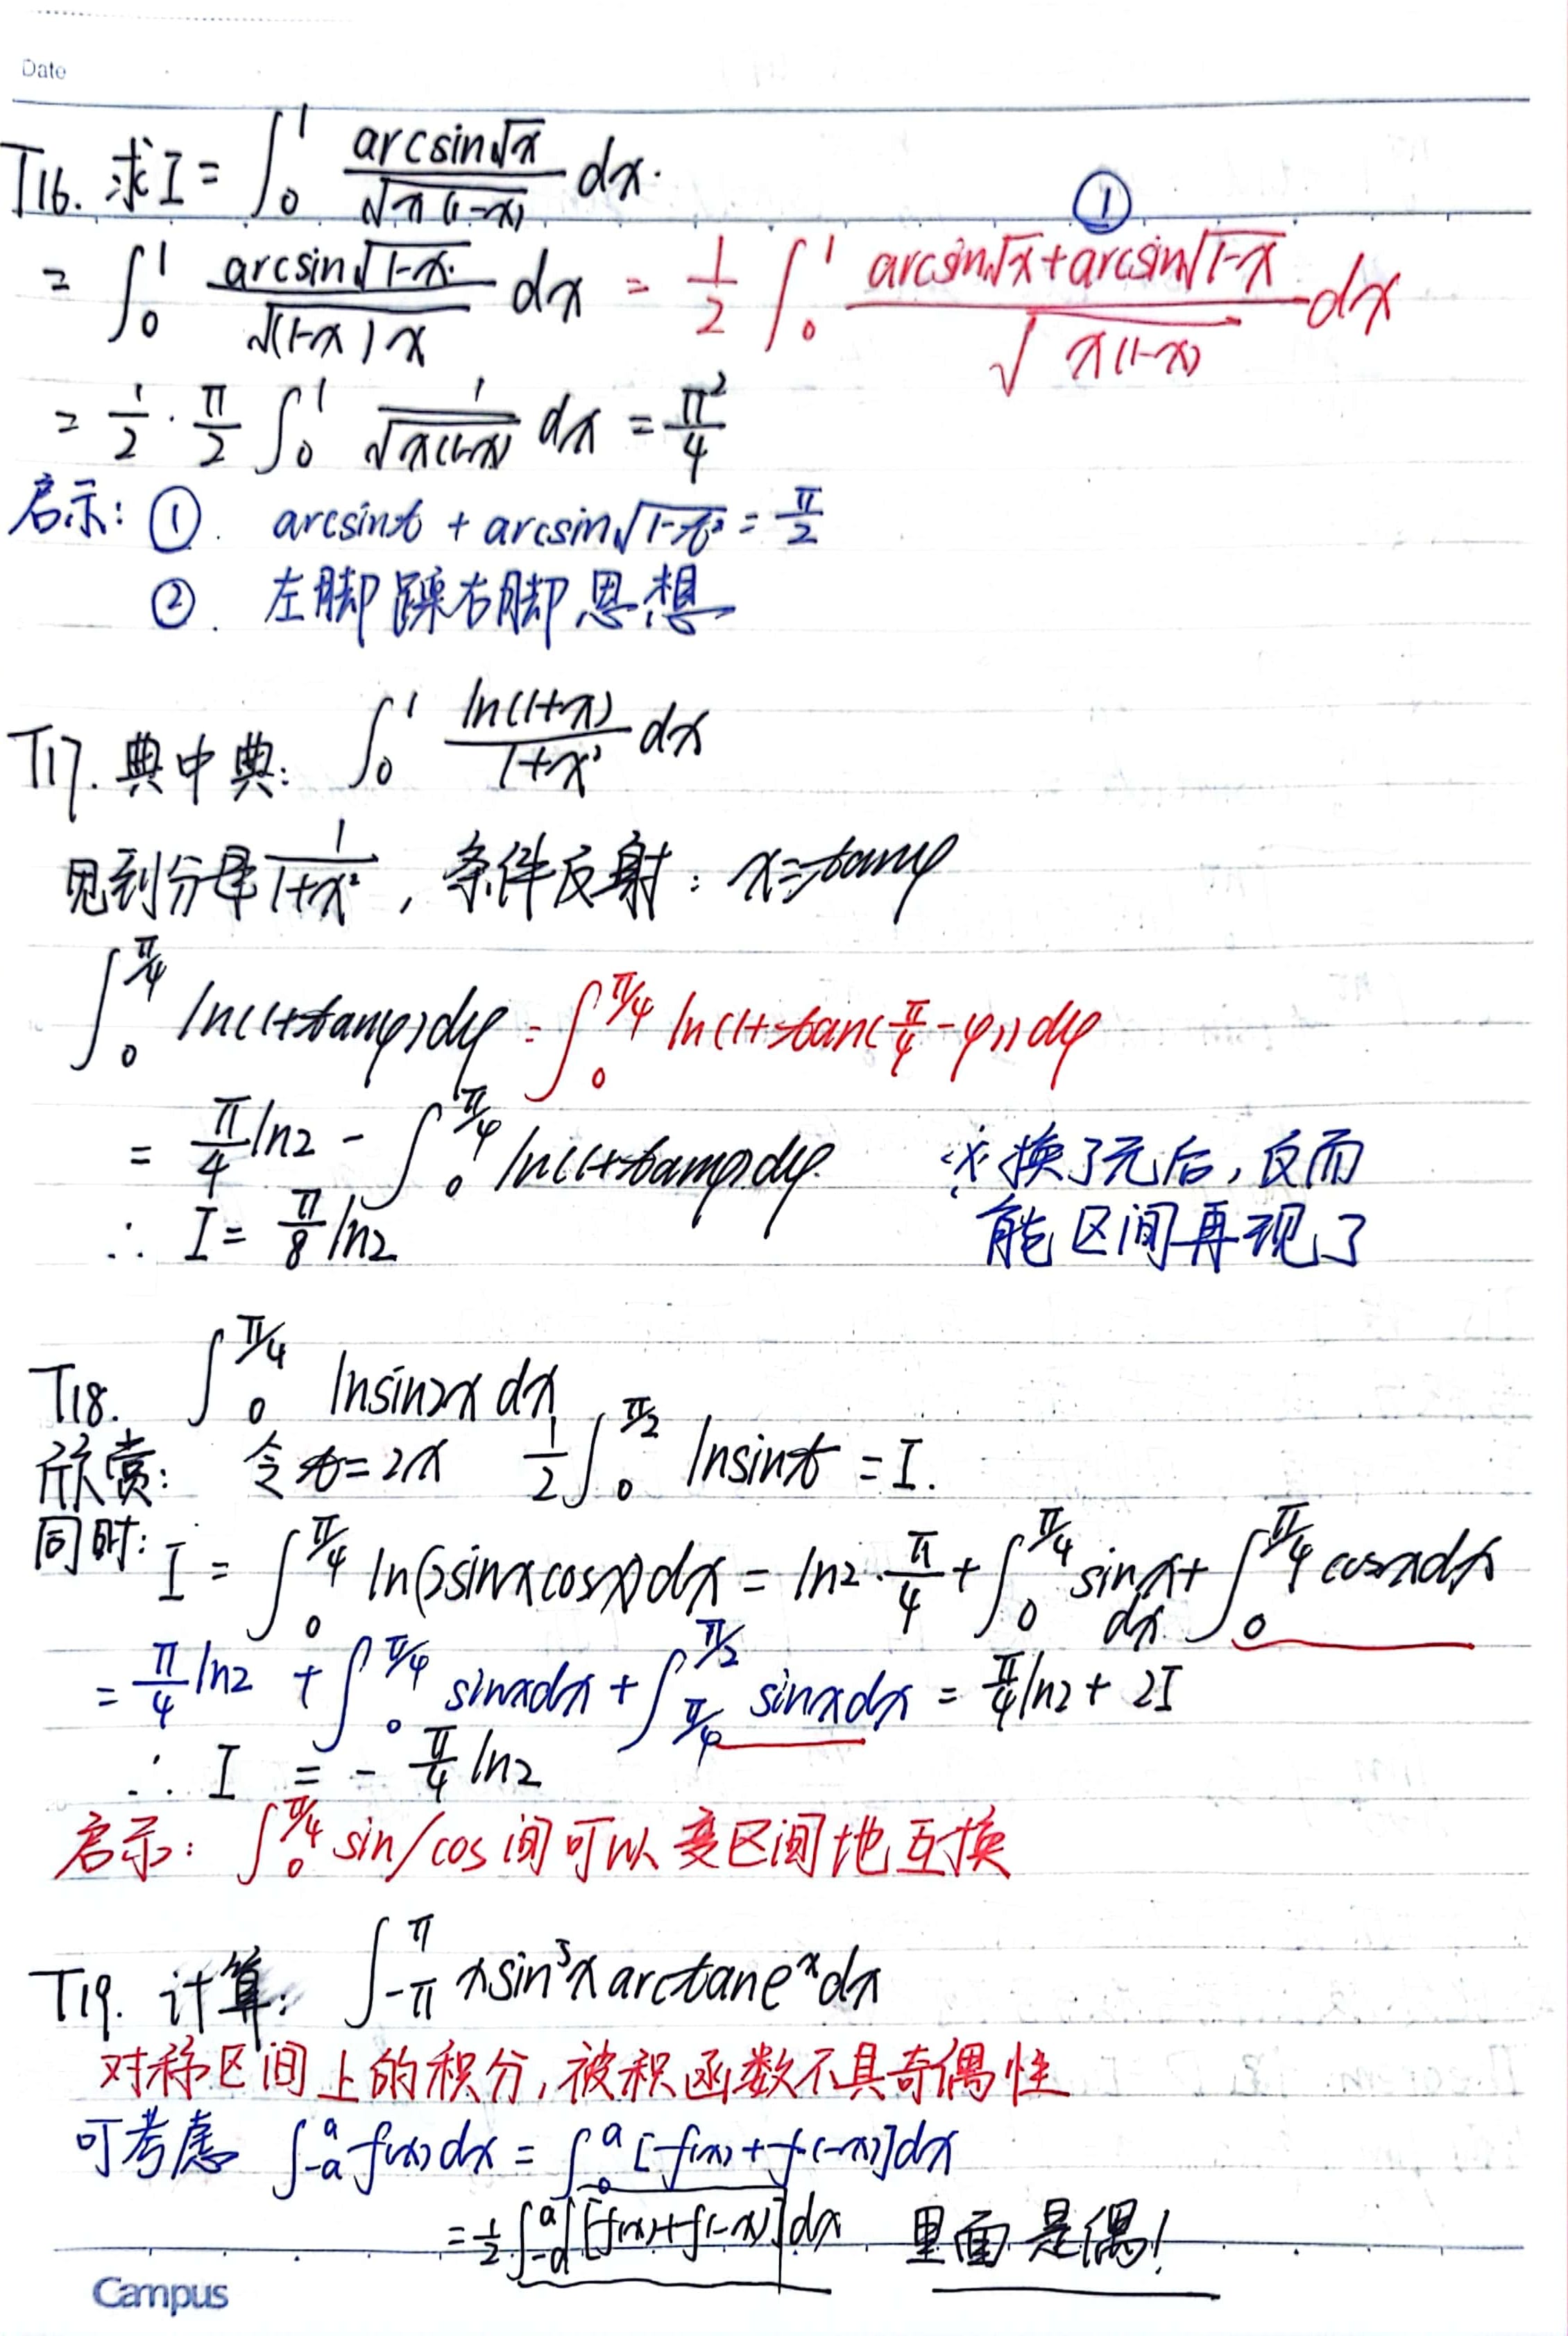 Date
T16. 求I = ∫₀¹ arcsin√x / √(x(1-x)) dx.
①
= ∫₀¹ arcsin√(1-x) / √((1-x)x) dx = 1/2 ∫₀¹ (arcsin√x + arcsin√(1-x)) / √(x(1-x)) dx
= 1/2 · π/2 ∫₀¹ 1/√(x(1-x)) dx = π²/4
启示: ①. arcsint + arcsin√(1-t²) = π/2
②. 左脚踩右脚思想
T17. 典中典: ∫₀¹ ln(1+x)/(1+x²) dx
见到分母 1/(1+x²), 条件反射: x=tanφ
∫₀^(π/4) ln(1+tanφ)dφ = ∫₀^(π/4) ln(1+tan(π/4-φ))dφ
= π/4 ln2 - ∫₀^(π/4) ln(1+tanφ)dφ. ※换了元后, 反而
∴ I = π/8 ln2 能区间再现了
T18. ∫₀^(π/4) lnsin2x dx
欣赏: 令t=2x 1/2 ∫₀^(π/2) lnsint = I.
同时: I = ∫₀^(π/4) ln(2sinxcosx)dx = ln2·π/4 + ∫₀^(π/4) sinx dx + ∫₀^(π/4) cosxdx
= π/4 ln2 + ∫₀^(π/4) sinxdx + ∫_(π/4)^(π/2) sinxdx = π/4 ln2 + 2I
∴ I = - π/4 ln2
启示: ∫₀^(π/4) sin/cos间可以变区间地互换
T19. 计算: ∫_(-π)^π xsin⁵x arctane^x dx
对称区间上的积分, 被积函数不具奇偶性
可考虑 ∫_(-a)^a f(x)dx = ∫₀^a [f(x)+f(-x)]dx
= 1/2 ∫_(-a)^a [f(x)+f(-x)]dx 里面是偶!
Campus